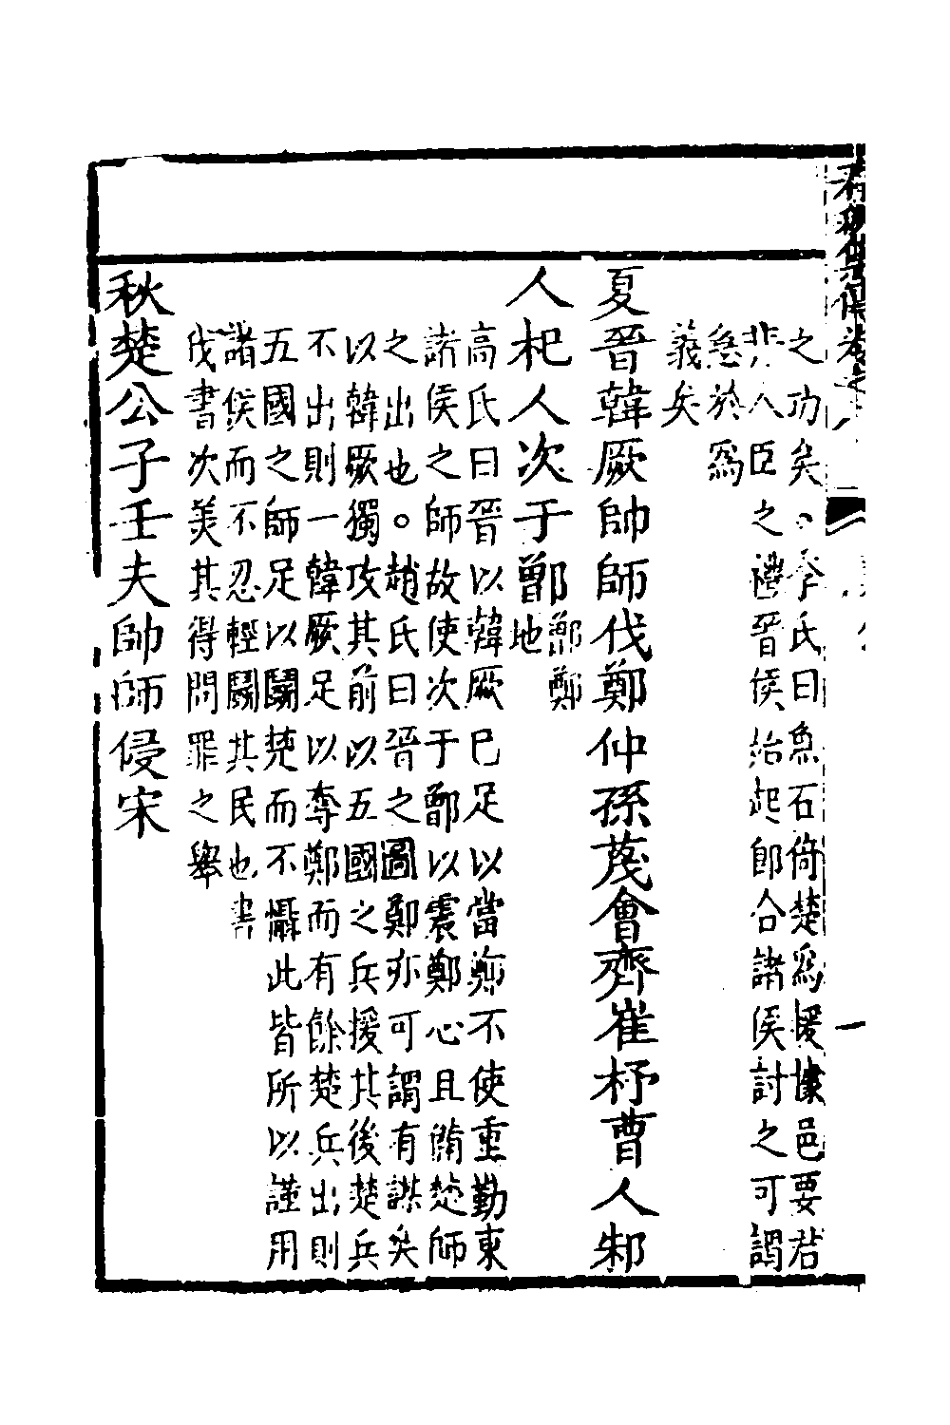 之功矣。李氏曰魚石倚楚爲援據邑要君
非人臣之禮晉侯始起卽合諸侯討之可謂
急於爲
義矣
夏晉韓厥帥師伐鄭仲孫蔑會齊崔杼曹人邾
人杞人次于鄫鄫鄭地
高氏曰晉以韓厥巳足以當鄭不使重勤東
諸侯之師故使次于鄫以震鄭心且備楚師
之出也。趙氏曰晉之圖鄭亦可謂有謀矣
以韓厥獨攻其前以五國之兵援其後楚兵
不出則一韓厥足以奪鄭而有餘楚兵出則
五國之師足以鬬楚而不懾此皆所以謹用
諸侯而不忍輕鬬其民也書
伐書次美其得問罪之舉
秋楚公子壬夫帥師侵宋